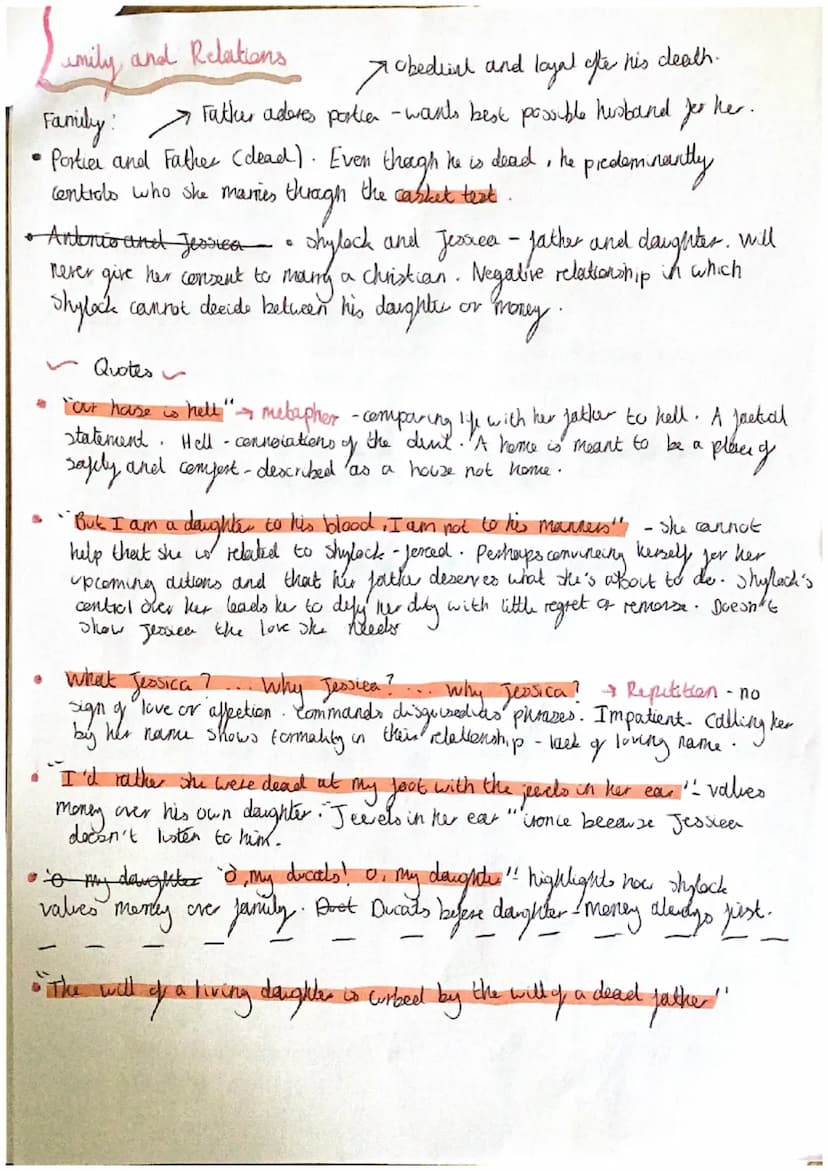 Family and Relations
→ Obedient and loyal after his death.
Family: → Father adores portia - wants best possible husband for her.
• Portia and Father (dead). Even though he is dead, he predominantly
controls who she marries through the casket test.
• Antonio and Jessica • Shylock and Jessica - father and daughter. Will
never give her consent to marry a christian. Negative relationship in which
Shylock cannot decide between his daughter or money.
Quotes
• "Our house is hell" → metaphor - comparing life with her father to hell. A factual
statement. Hell - connotations of the devil. A home is meant to be a place of
safety and comfort - described as a house not home.
• "But I am a daughter to his blood, I am not to his manners" - she cannot
help that she is related to Shylock - forced. Perhaps convincing herself for her
upcoming actions and that her father deserves what she's about to do. Shylock's
control over her leads her to defy her duty with little regret or remorse. Doesn't
show Jessica the love she needs
• What Jessica? ... Why Jessica? ... Why Jessica? → Repitition - no
sign of love or affection. Commands disguised as phrases. Impatient. Calling her
by her name shows formality in their relationship - lack of loving name.
• "I'd rather she were dead at my foot with the jewels in her ear" - values
money over his own daughter. "Jewels in her ear" ironic because Jessica
doesn't listen to him.
• 'O my daughter "O, my ducats! O, my daughter" - highlights how Shylock
values money over family. Ducats before daughter - money always first.
• "The will of a living daughter is curbed by the will of a dead father"